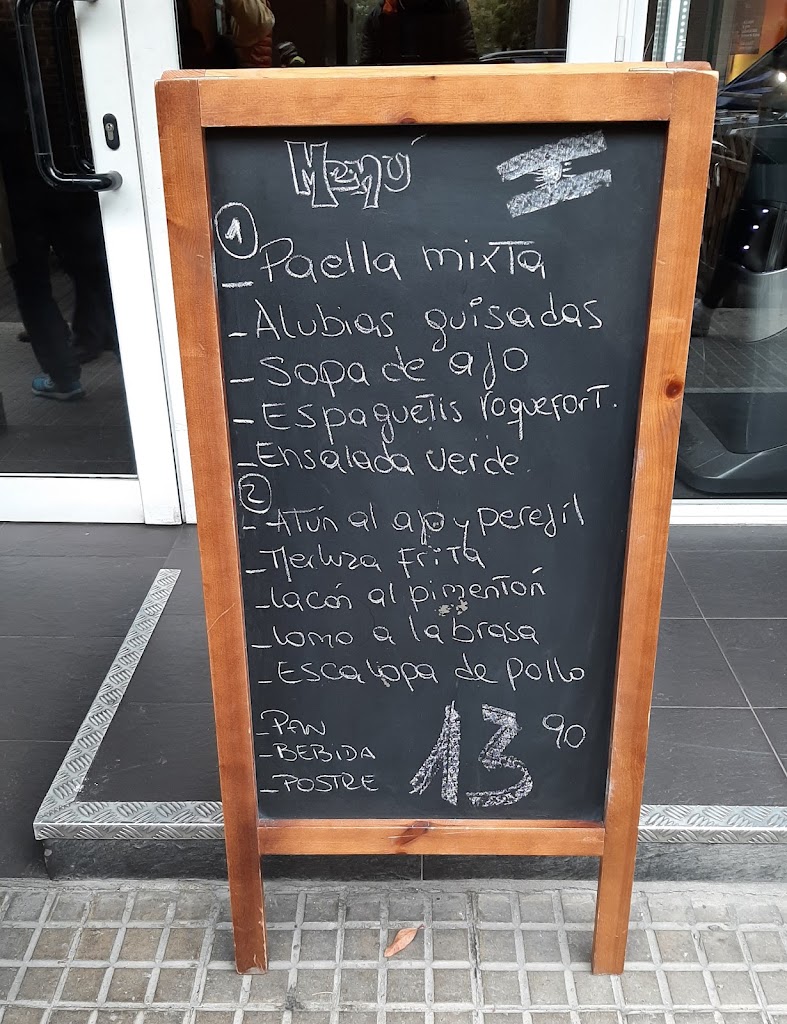 Menú
1
- Paella mixta
- Alubias guisadas
- Sopa de ajo
- Espaguetis roquefort.
- Ensalada verde.
2
- Atún al ajo y perejil
- Merluza frita
- lacón al pimentón
- lomo a la brasa
- Escalopa de pollo
- PAN
- BEBIDA
- POSTRE
13 90